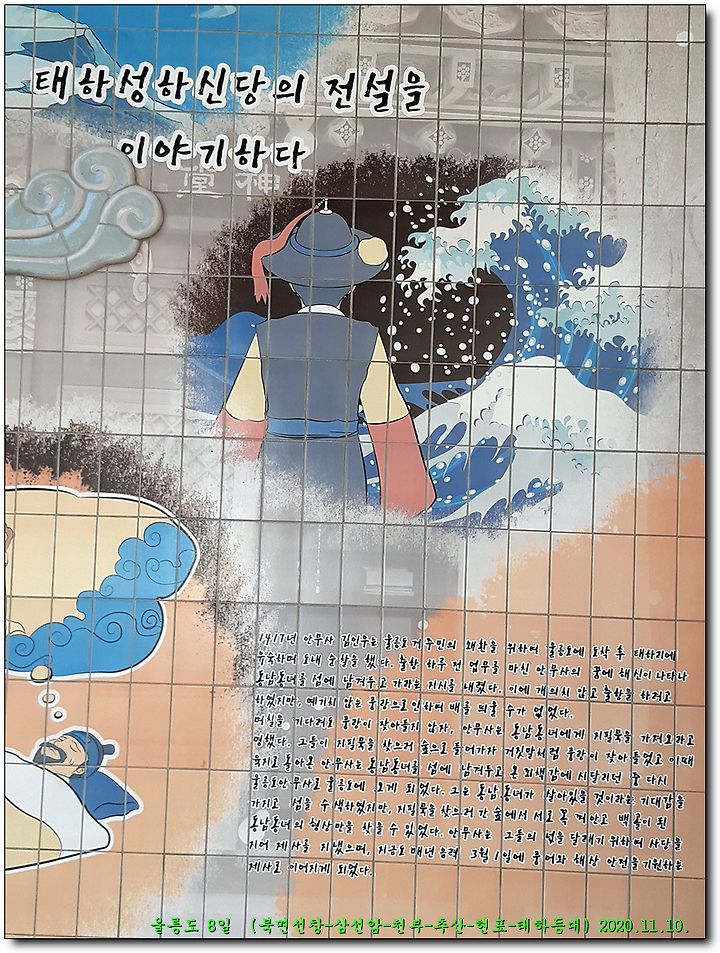 태하성하신당의 전설을
이야기하다
堂神
1417년 안무사 김인우는 울릉도거주민의 쇄환을 위하여 울릉도에 도착 후 태하리에
유숙하며 도내 순찰을 했다. 출항 하루 전 업무를 마친 안무사의 꿈에 해신이 나타나
동남동녀를 섬에 남겨두고 가라는 지시를 내렸다. 이에 개의치 않고 출항을 하려고
하였지만, 예기치 않는 풍랑으로 인하여 배를 띄울 수가 없었다.
며칠을 기다려도 풍랑이 잦아들지 않자, 안무사는 동남동녀에게 지필묵을 가져오라고
명했다. 그들이 지필묵을 찾으러 숲으로 들어가자 거짓말처럼 풍랑이 잦아들었고 이때
육지로 돌아온 안무사는 동남동녀를 섬에 남겨두고 온 죄책감에 시달리던 중 다시
울릉도안무사로 울릉도에 오게 되었다. 그는 동남동녀가 살아있을 것이라는 기대감을
가지고 섬을 수색하였지만, 지필묵을 찾으러 간 숲에서 서로 꼭 껴안고 백골이 된
동남동녀의 형상만을 찾을 수 있었다. 안무사는 그들의 넋을 달래기 위하여 사당을
지어 제사를 지냈으며, 지금도 매년 음력 3월 1일에 풍어와 해상 안전을 기원하는
제사로 이어지게 되었다.
울릉도 8일 (북면선창-삼선암-천부-추산-현포-태하등대) 2020.11.10.